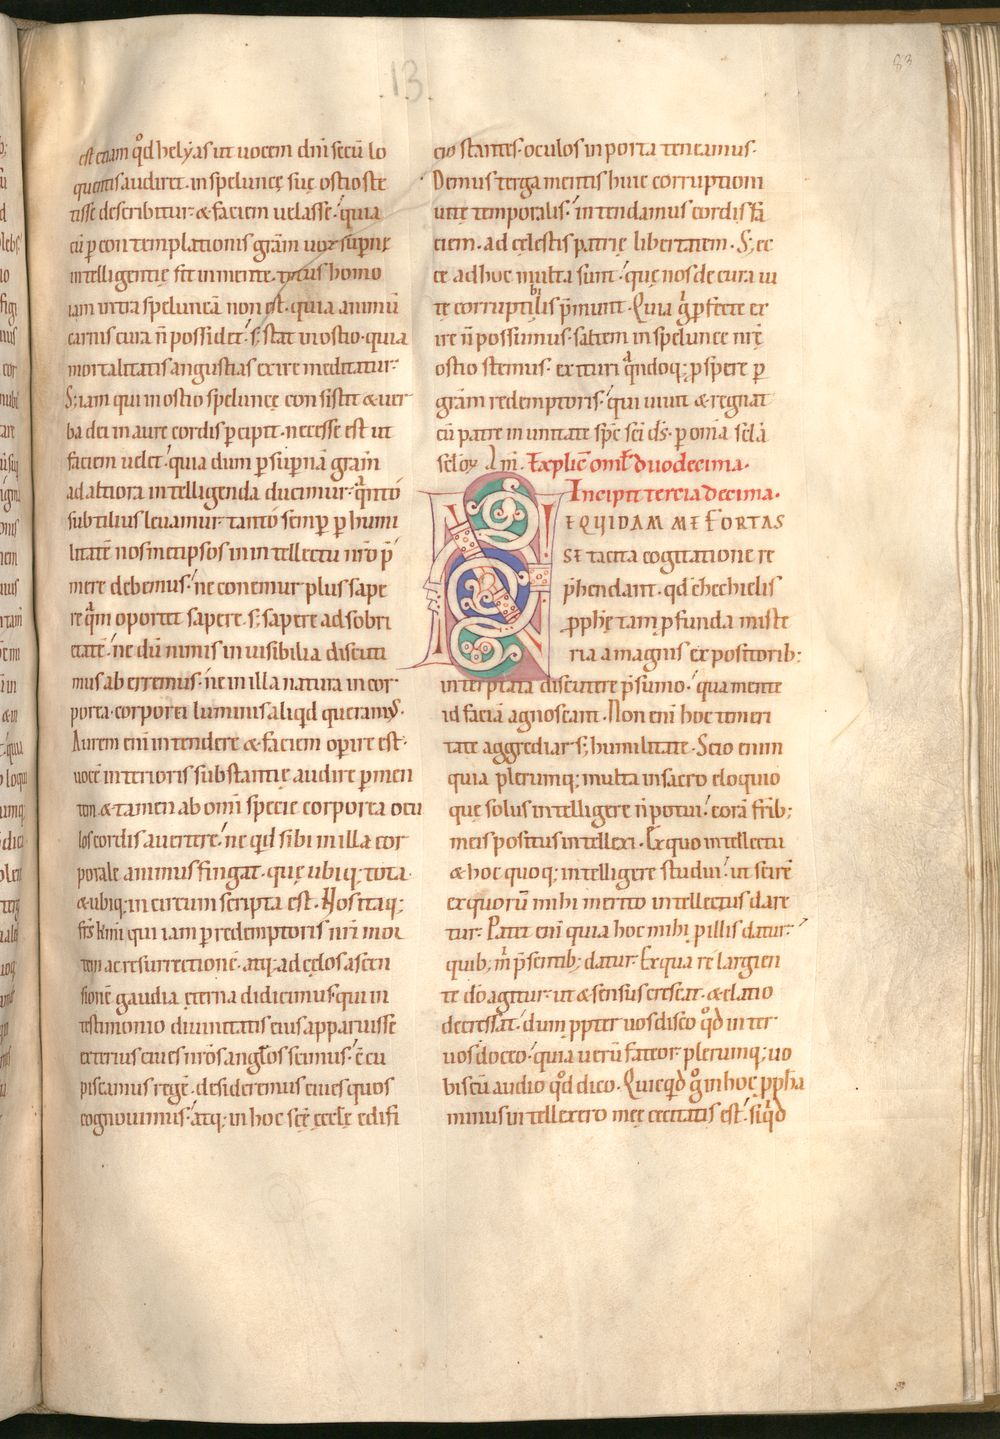 13
83
est etiam qd̾ helyas ut uocem dnī secū lo
quentis audiret. in speluncę suę ostio ste
tisse describitur. & faciem uelasse. quia
cū ꝑ contemplationis grām uox supnę
intelligentię fit in mente. totus homo
iam intra speluncā non est. quia animū
carnis cura ñ possidet. s; stat in ostio. quia
mortalitatis angustias exire meditatur.
S; iam qui in ostio speluncę consistit & uer
ba dei in aure cordis ꝑcipit. necesse est ut
faciem uelet. quia dum ꝑ supnā grām
ad altiora intelligenda ducimur. qͣnto
subtilius leuamur. tanto semꝑ ꝑ humi
litatē nosmetipsos in intellectu nr̄o p̄
mere debemus. ne conemur plus sape
re qͣm oportet sapere. s; sapere ad sobri
etatē. ne dū nimis inuisibilia discuti
mus aberremus. ne in illa natura incor
porea. corporei luminis aliqd queramꝰ.
Aurem eni intendere & faciem oꝑire est.
uocē interioris substantię audire ꝑ men
tem. & tamen ab omī specie corporea ocu
los cordis auertere. ne qd sibi in illa cor
porale animus fingat. quę ubiq; tota.
& ubiq; incircumscripta est. Nos itaq;
frs kmi qui iam ꝑ redemptoris nrī mor
tem ac resurrectionē. atq; ad cęlos ascen
sionē gaudia ęterna didicimus. qui in
testimonio diuinitatis eius apparuisse
exterius ciues nrōs anglos scimus. cū
piscamus regē. desideremus ciues quos
cognouimus. atq; in hoc scę ęcclę edifi
cio stantes. oculos in porta teneamus.
Demus terga mentis huic corruptioni
uitę temporalis. intendamus cordis fa
ciem. ad cęlestis patrię libertatem. S; ec
ce adhuc multa sunt. quę nos de cura ui
te corruptibilis p̄munt. Quia g̾ ꝑfecte ex
ire ñ possumus. saltem in speluncę nrę
ostio stemus. exituri qͣndoq; pspere ꝑ
grām redemptoris. qui uiuit & regnat
cū patre in unitate spc sci ds. ꝑ omīa sclā
scloꝝ Am̄. Explic̄ omēl duodecima.
Incipit tercia decima.
NEQUIDAM ME FORTAS
SE tacita cogitatione re
p̄hendant. qd ehechielis
pphę tam ꝓfunda miste
ria a magnis expositorib:
interptata discutere p̄sumo. qua mente
id faciā agnoscant. Non eni hoc temeri
tate aggredior s; humilitate. Scio enim
quia plerumq; multa in sacro eloquio
quę solus intelligere ñ potui. corā frib;
meis positus intellexi. Ex quo intellectu
& hoc quoq; intelligere studui. ut scirē
ex quorū mihi merito intellectus dare
tur. Patet eni quia hoc mihi ꝑ illis datur.
quib; m̄ p̄sentib; datur. Ex qua re largien
te dō agitur. ut & sensus crescat. & elatio
decrescat. dum ppter uos disco qd̾ inter
uos doceo. quia uerū fateor plerumq; uo
biscū audio qd̾ dico. Quicqd g̾ in hoc ppha
minus intellexero meę cecitatis est. si qͥd